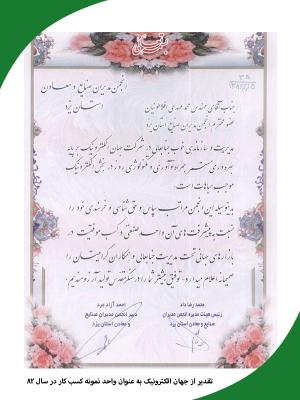 بسمه تعالی
انجمن مدیران صنایع و معادن
استان یزد
جناب آقای مهندس محمد مهدی
عضو محترم انجمن مدیران صنایع استان یزد
مدیریت و سازماندهی خوب جنابعالی در شرکت جهان الکترونیک بر پایه
بهره‌وری و نوآوری و تکنولوژی روز در بخش الکترونیک
موجب مباهات است.
بدینوسیله این انجمن مراتب سپاس و حق شناسی و خرسندی خود را
نسبت به پیشرفت‌های آن واحد صنعتی و کسب موفقیت در
بازارهای جهانی تحت مدیریت جنابعالی و همکاران گرامیتان را
صمیمانه اعلام میدارد، توفیق بیشتر شما را در سنگر مقدس تولید آرزومندیم.
محمدرضا داد
رئیس هیئت مدیره انجمن مدیران
صنایع و معادن استان یزد
احمد آزاد مرد
دبیر انجمن مدیران صنایع
و معادن استان یزد
تقدیر از جهان الکترونیک به عنوان واحد نمونه کسب کار در سال ۸۲